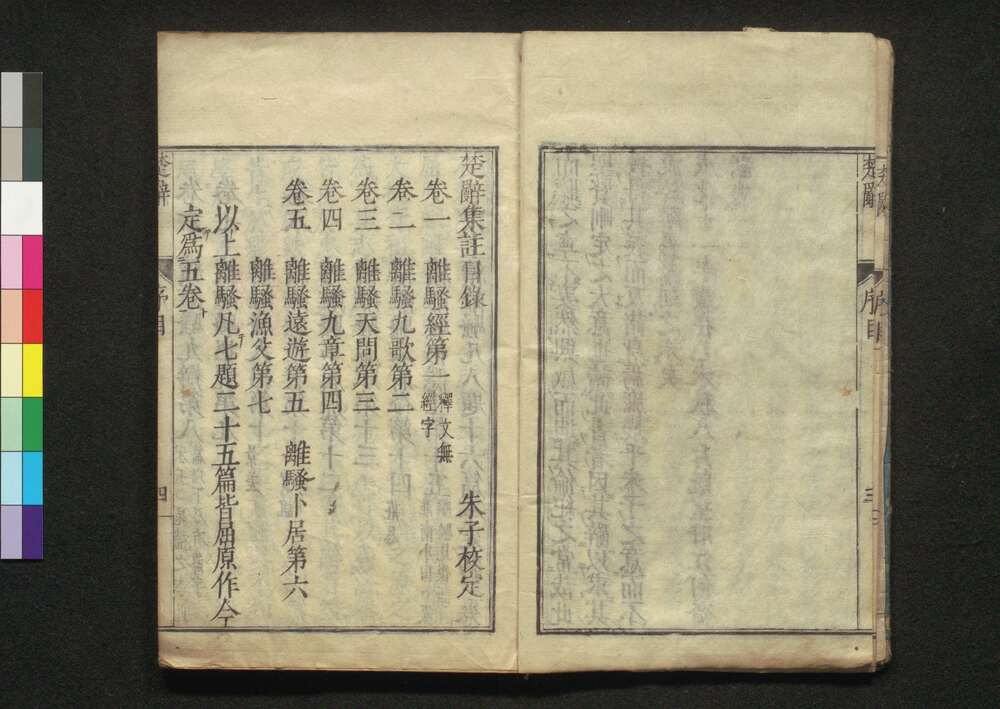 楚辭
序目
三
楚辭集註目錄
朱子校定
卷一　離騷經第一　釋文無經字
卷二　離騷九歌第二
卷三　離騷天問第三
卷四　離騷九章第四
卷五　離騷遠遊第五　離騷卜居第六
離騷漁父第七
以上離騷凡七題二十五篇皆屈原作今
定爲五卷
楚辭
序目
四